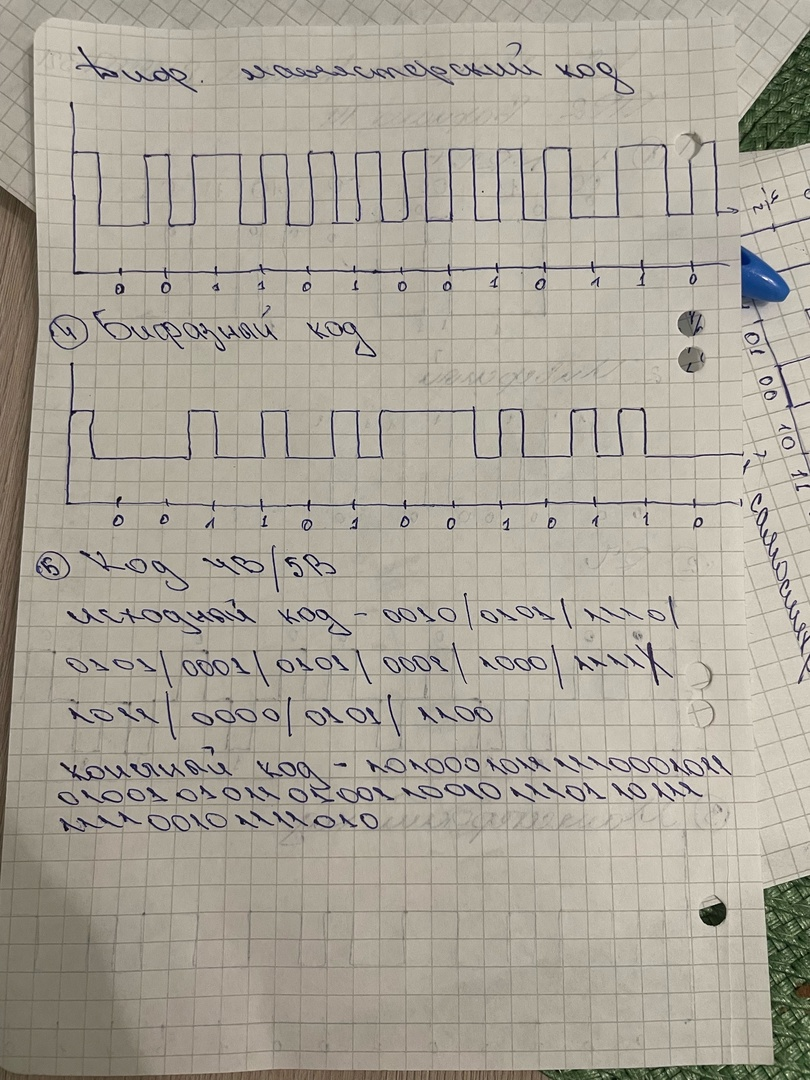 Дифр. манчестерский код
0 0 1 1 0 1 0 0 1 0 1 1 0
4 Бифазный код
0 0 1 1 0 1 0 0 1 0 1 1 0
5 Код 4B/5B
исходный код - 0010/0101/1110/
0101/0001/0101/0001/1000/1111/
1011/0000/0101/1100
конечный код - 10100010111110001011
01001 01011 01001 10010 11101 10111
11110010111 11010